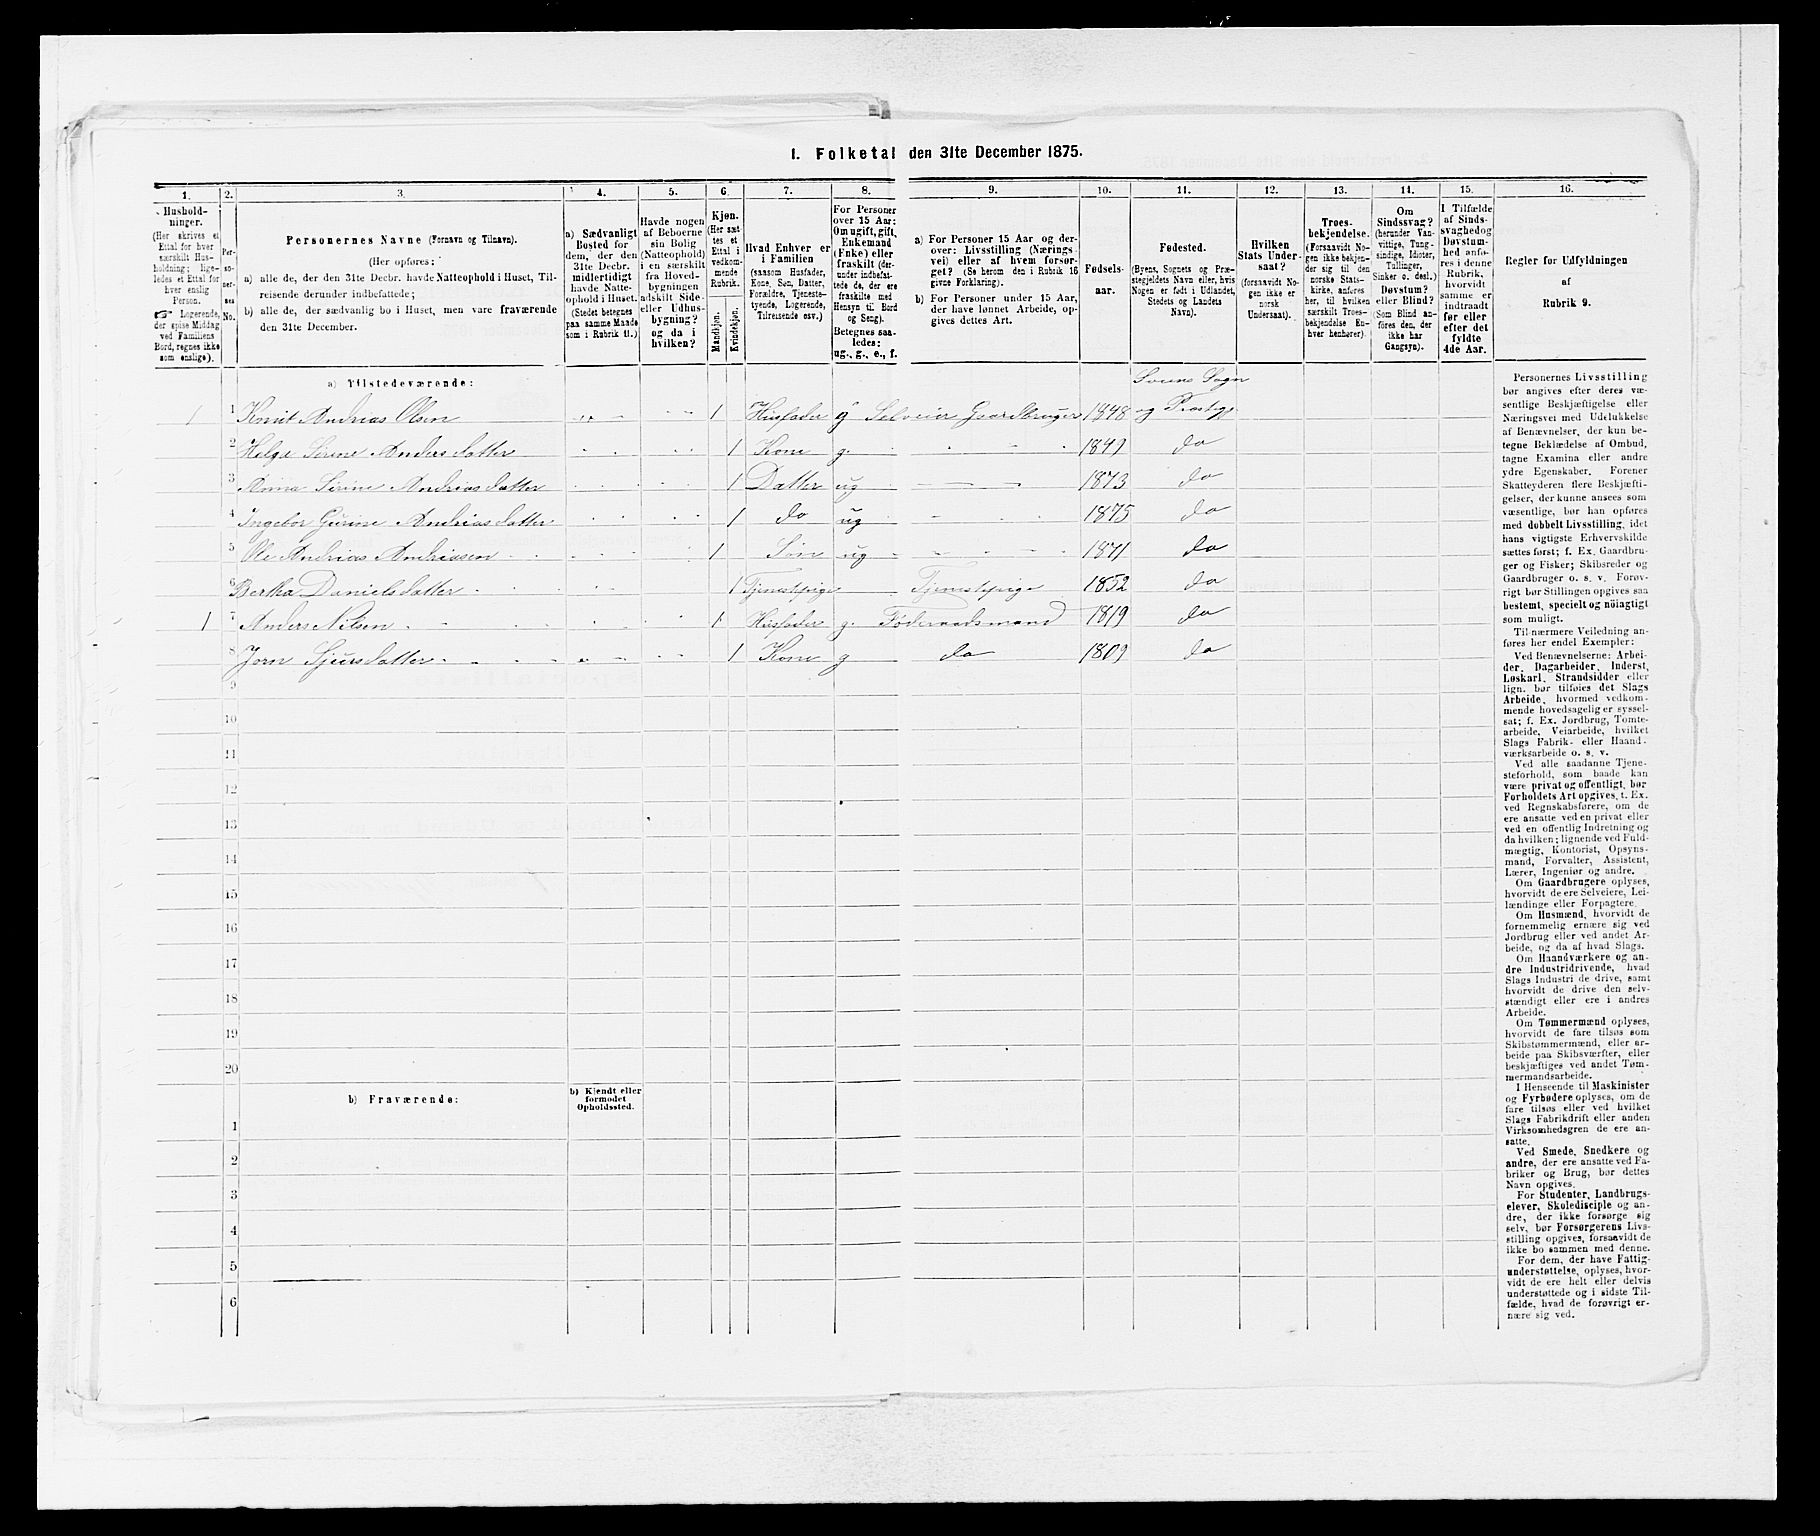 1. Folketal den 31te December 1875.
1.
2.
3.
4.
5.
6.
7.
8.
9.
10.
11.
12.
13.
14.
15.
16.
Hushold-
ninger.
(Her skrives et
Ettal for hver
særskilt Hus-
holdning; lige-
ledes et Ettal for
hver enslig
Person.
☞ Logerende,
der spise Middag
ved Familiens
Bord, regnes ikke
som enslige).
Per-
so-
ner-
nes
No.
Personernes Navne (Fornavn og Tilnavn).
(Her opføres:
a) alle de, der den 31te Decbr. havde Natteophold i Huset, Til-
reisende derunder indbefattede;
b) alle de, der sædvanlig bo i Huset, men vare fraværende
den 31te December.
a) Sædvanligt
Bosted for
dem, der den
31te Decbr.
midlertidigt
havde Natte-
ophold i Huset.
(Stedet betegnes
paa samme Maade
som i Rubrik 11.)
Havde nogen
af Beboerne
sin Bolig
(Natteophold)
i en særskilt
fra Hoved-
bygningen
adskilt Side-
eller Udhus-
bygning?
og da i
hvilken?
Kjøn.
(Her sæt-
tes et
Ettal i
vedkom-
mende
Rubrik.
Mandkjøn.
Kvindekjøn.
Hvad Enhver er
i Familien
(saasom Husfader,
Kone, Søn, Datter,
Forældre, Tjeneste-
tyende, Logerende,
Tilreisende osv.)
For Personer
over 15 Aar:
Om ugift, gift,
Enkemand
(Enke) eller
fraskilt (der-
under indbefat-
tede de, der ere
fraskilte med
Hensyn til Bord
og Seng).
Betegnes saa-
ledes:
ug., g., e., f.
a) For Personer 15 Aar og der-
over: Livsstilling (Nærings-
vei) eller af hvem forsør-
get? (Se herom den i Rubrik 16
givne Forklaring).
b) For Personer under 15 Aar,
der have lønnet Arbeide, op-
gives dettes Art.
Fødsels-
aar.
Fødested.
(Byens, Sognets og Præ-
stegjeldets Navn eller, hvis
Nogen er født i Udlandet,
Stedets og Landets
Navn).
Hvilken
Stats Under-
saat?
(forsaavidt No-
gen ikke er
norsk
Undersaat).
Troes-
bekjendelse.
(Forsaavidt No-
gen ikke bekjen-
der sig til den
norske Stats-
kirke, anføres
her, til hvilken
særskilt Troes-
bekjendelse En-
hver henhører).
Om
Sindssvag?
(herunder Van-
vittige, Tung-
sindige, Idioter,
Tullinger,
Sinker o. desl.)
Døvstum?
eller Blind?
(Som Blind an-
føres den, der
ikke har
Gangsyn).
I Tilfælde
af Sinds-
svaghed og
Døvstum-
hed anfø-
res i denne
Rubrik,
hvorvidt
samme er
indtraadt
før eller
efter det
fyldte
4de Aar.
Regler for Udfyldningen
af
Rubrik 9.
a) Tilstedeværende:
Sveens Sogn
1 1 Knut Andrias Olsen 1 Husfader g Selveier Gaardbruger 1848 og Prestegj.
2 Helga Sirine Andersdatter 1 Kone g. 1849 do
3 Anna Sirine Andriasdatter 1 Datter ug 1873 do
4 Ingebor Gurine Andriasdatter 1 do ug 1875 do
5 Ole Andrias Andriassen 1 Søn ug 1871 do
6 Bertha Danielsdatter 1 Tjenestpige Tjenestpige 1852 do
1 7 Anders Nilsen 1 Husfader g. Föderaadsmand 1819 do
8 Jorn Sjursdatter 1 Kone g do 1809 do
9
10
11
12
13
14
15
16
17
18
19
20
b) Fraværende:
b) Kjendt eller
formodet
Opholdssted.
1
2
3
4
5
6
Personernes Livsstilling
bør angives efter deres væ-
sentlige Beskjæftigelse eller
Næringsvei med Udelukkelse
af Benævnelser, der kun be-
tegne Beklædelse af Ombud,
tagne Examina eller andre
ydre Egenskaber. Forener
Skatteyderen flere Beskjæfti-
gelser, der kunne ansees som
væsentlige, bør han opføres
med dobbelt Livsstilling, idet
hans vigtigste Erhvervskilde
sættes først; f. Ex. Gaardbru-
ger og Fisker; Skibsreder og
Gaardbruger o. s. v. Forøv-
rigt bør Stillingen opgives saa
bestemt, specielt og nöiagtigt
som muligt.
Til nærmere Veiledning an-
føres her endel Exempler:
Ved Benævnelserne: Arbei-
der, Dagarbeider, Inderst,
Løskarl, Strandsidder eller
lign. bør tilføies det Slags
Arbeide, hvormed vedkom-
mende hovedsagelig er syssel-
sat; f. Ex. Jordbrug, Tomte-
arbeide, Veiarbeide, hvilket
Slags Fabrik- eller Haand-
værksarbeide o. s. v.
Ved alle saadanne Tjene-
steforhold, som baade kan
være privat og offentligt, bør
Forholdets Art opgives, t. Ex.
ved Regnskabsførere, om de
ere ansatte ved en privat eller
ved en offentlig Indretning og
da hvilken; lignende ved Fuld-
mægtig, Kontorist, Opsyns-
mand, Forvalter, Assistent,
Lærer, Ingeniør og andre.
Om Gaardbrugere oplyses,
hvorvidt de ere Selveiere, Lei-
lændinge eller Forpagtere.
Om Husmænd, hvorvidt de
fornemmelig ernære sig ved
Jordbrug eller ved andet Ar-
beide, og da af hvad Slags.
Om Haandværkere og an-
dre Industridrivende, hvad
Slags Industri de drive, samt
hvorvidt de drive den selv-
stændigt eller ere i andres
Arbeide.
Om Tømmermænd oplyses,
hvorvidt de fare tilsøs som
Skibstømmermænd, eller ar-
beide paa Skibsværfter, eller
beskjæftiges ved andet Tøm-
mermandsarbeide.
I Henseende til Maskinister
og Fyrbødere oplyses, om de
fare tilsøs eller ved hvilket
Slags Fabrikdrift eller anden
Virksomhedsgren de ere an-
satte.
Ved Smede, Snedkere og
andre, der ere ansatte ved Fa-
briker og Brug, bør dettes
Navn opgives.
For Studenter, Landbrugs-
elever, Skoledisciple og an-
dre, der ikke forsørge sig
selv, bør Forsørgerens Livs-
stilling opgives, forsaavidt de
ikke bo sammen med denne.
For dem, der have Fattig-
understøttelse, oplyses, hvor-
vidt de ere helt eller delvis
understøttede og i sidste Til-
fælde, hvad de forøvrigt er-
nære sig ved.